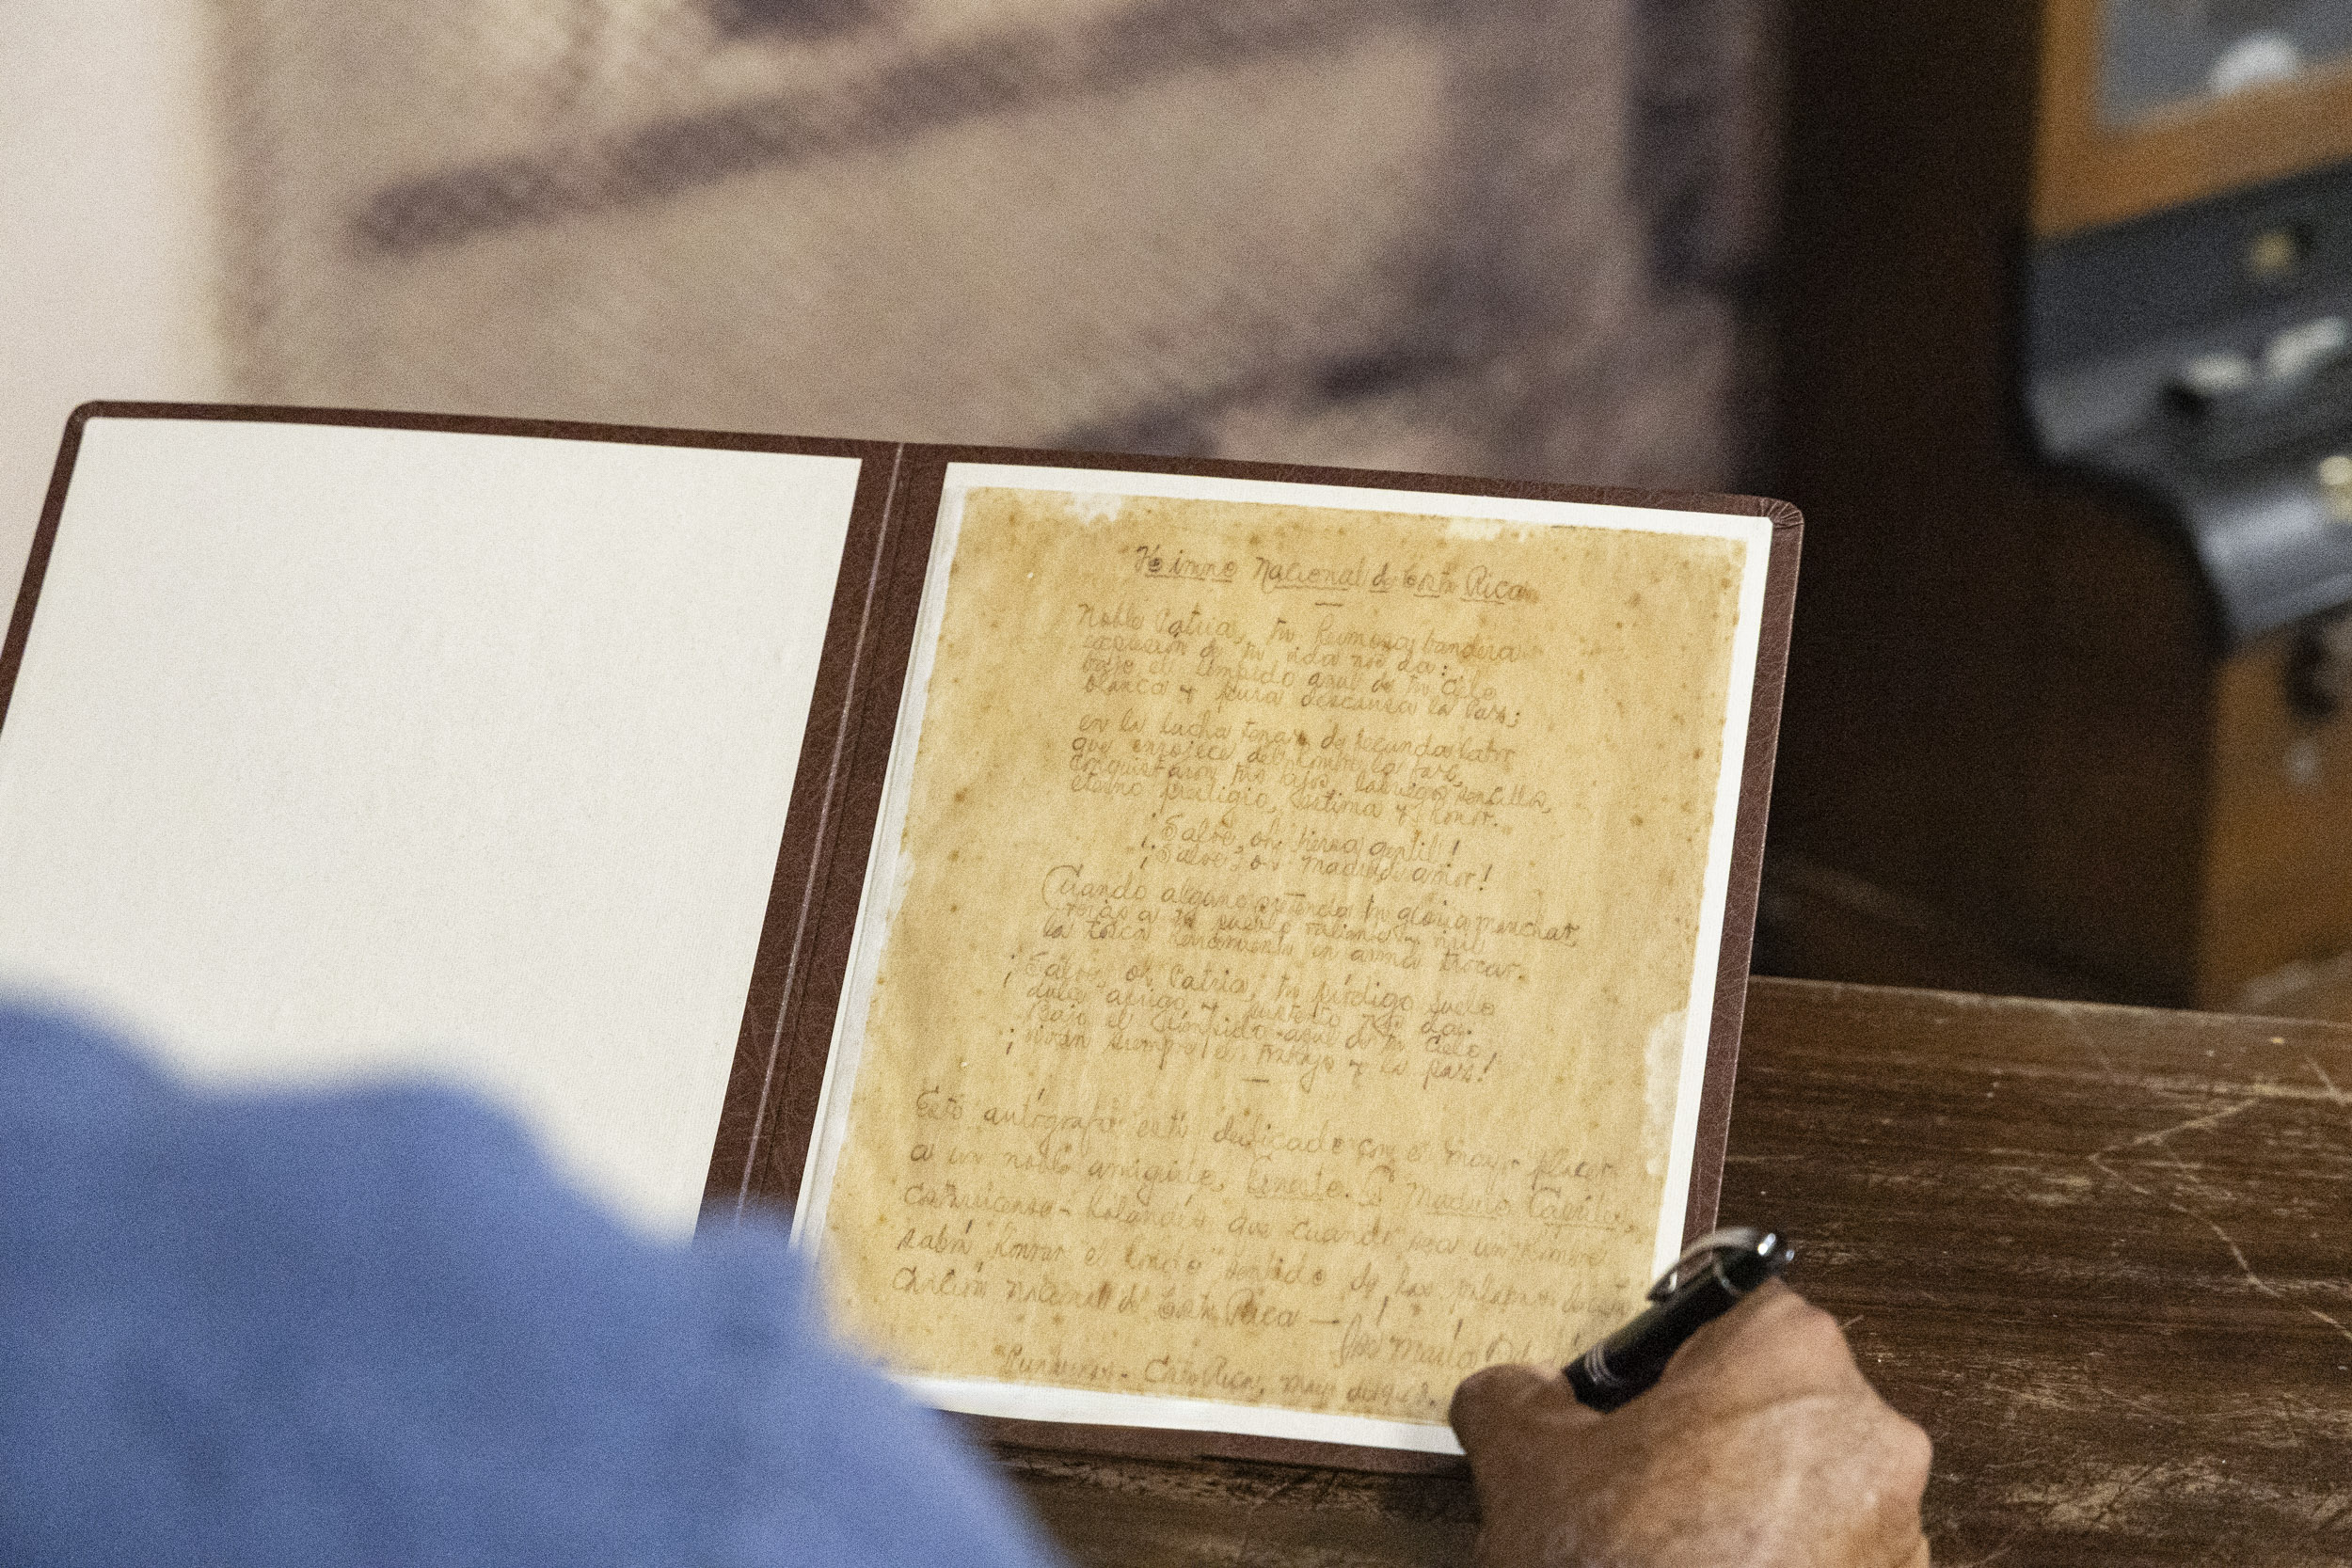 Himno Nacional de Costa Rica
Noble Patria, tu hermosa bandera
expresión de tu vida nos da:
bajo el límpido azul de tu cielo
blanca y pura descansa la Paz;
en la lucha tenaz de fecunda labor
que enrojece del hombre la faz,
conquistaron tus hijos, labriegos sencillos,
eterno prestigio, estima y honor.
¡Salve, oh tierra gentil!
¡Salve, oh madre de amor!
Cuando alguno pretenda tu gloria manchar,
verás a tu pueblo valiente y viril
la tosca herramienta en arma trocar.
¡Salve oh Patria, tu pródigo suelo
dulce abrigo y sustento nos da;
Bajo el límpido azul de tu cielo
¡vivan siempre el trabajo y la paz!
Este autógrafo está dedicado con el mayor placer
a un noble amiguito, Ernesto. C Maduro
costarricense-holandés que cuando sea un hombre
sabrá honrar el hondo sentido de las palabras
Canción Nacional de Costa Rica —
José María
Costa Rica, mayo de